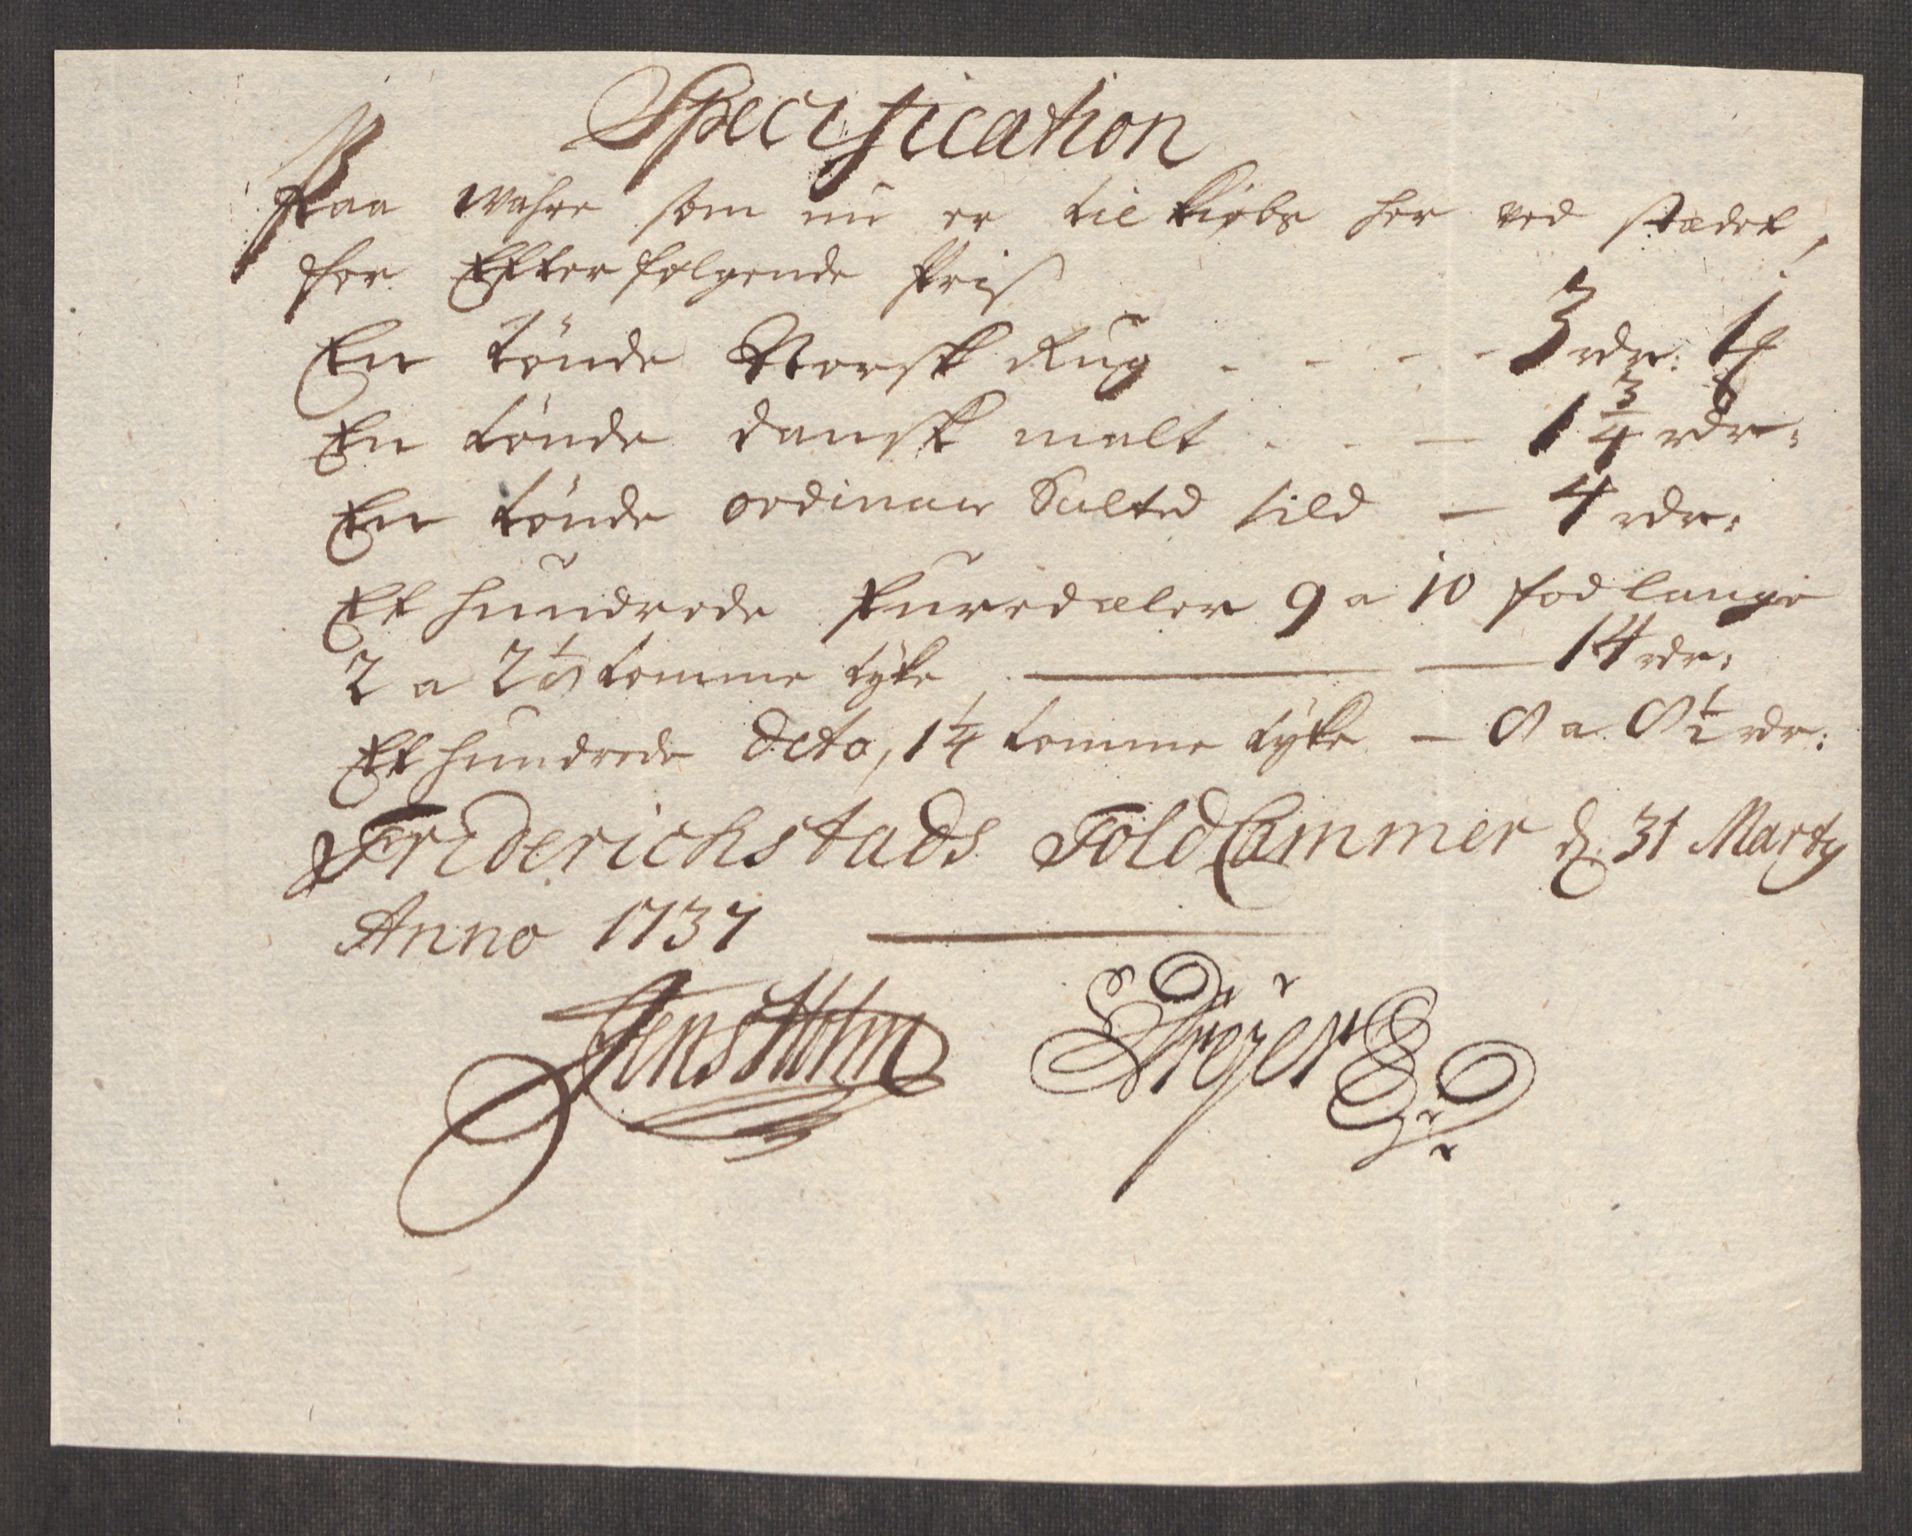 Specification
Paa Wahre som nu er til kiøbs her ved stædet,
for Efterfølgende Pris
En tönde Norsk Rug - - - - 3 rdr: 1
En tönde dansk malt - - - 1 3/4 rdr:
En tönde ordinair Salted sild - 4 rdr:
Et hundrede furredæler 9 a 10 fod lange
2 a 2 1/2 tomme tÿke - 14 rdr:
Et hundrede dito, 1 1/4 tomme tÿke - 8 a 8 1/2 rdr:
Friderichstads Told Cammer d. 31 Marty
Anno 1737
Jens Holm Dreÿer